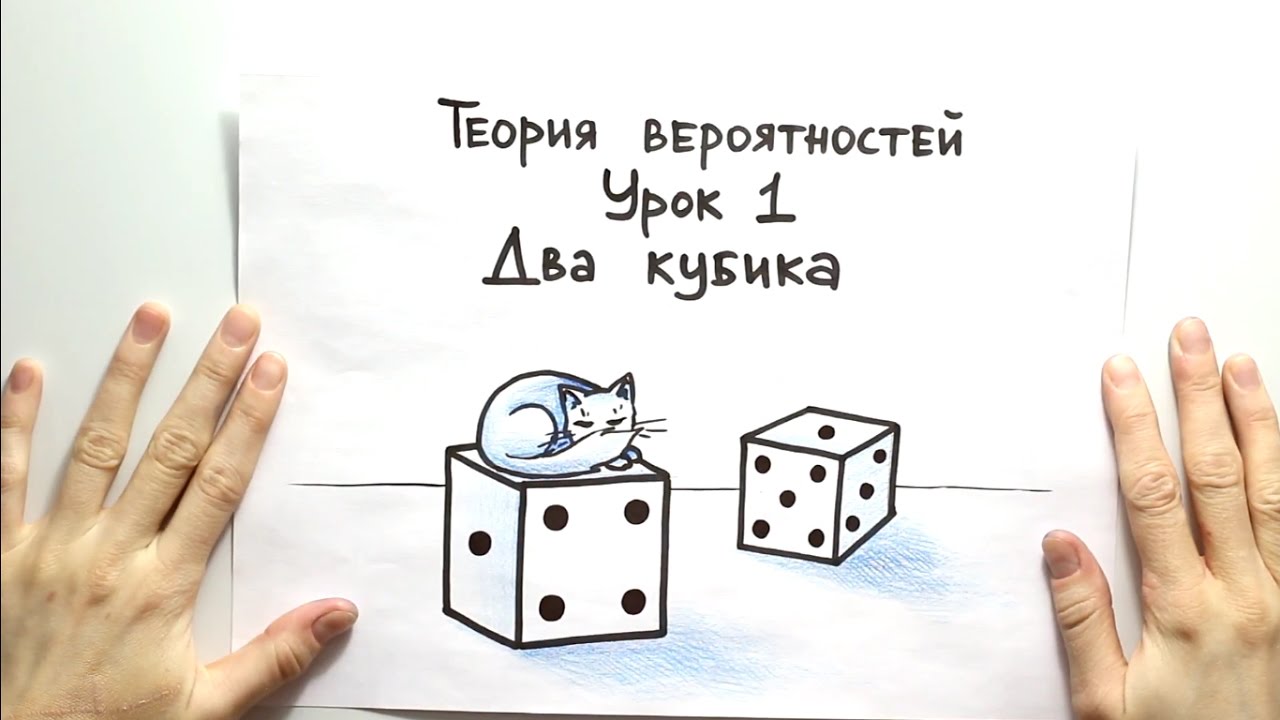 Теория вероятностей
Урок 1
Два кубика